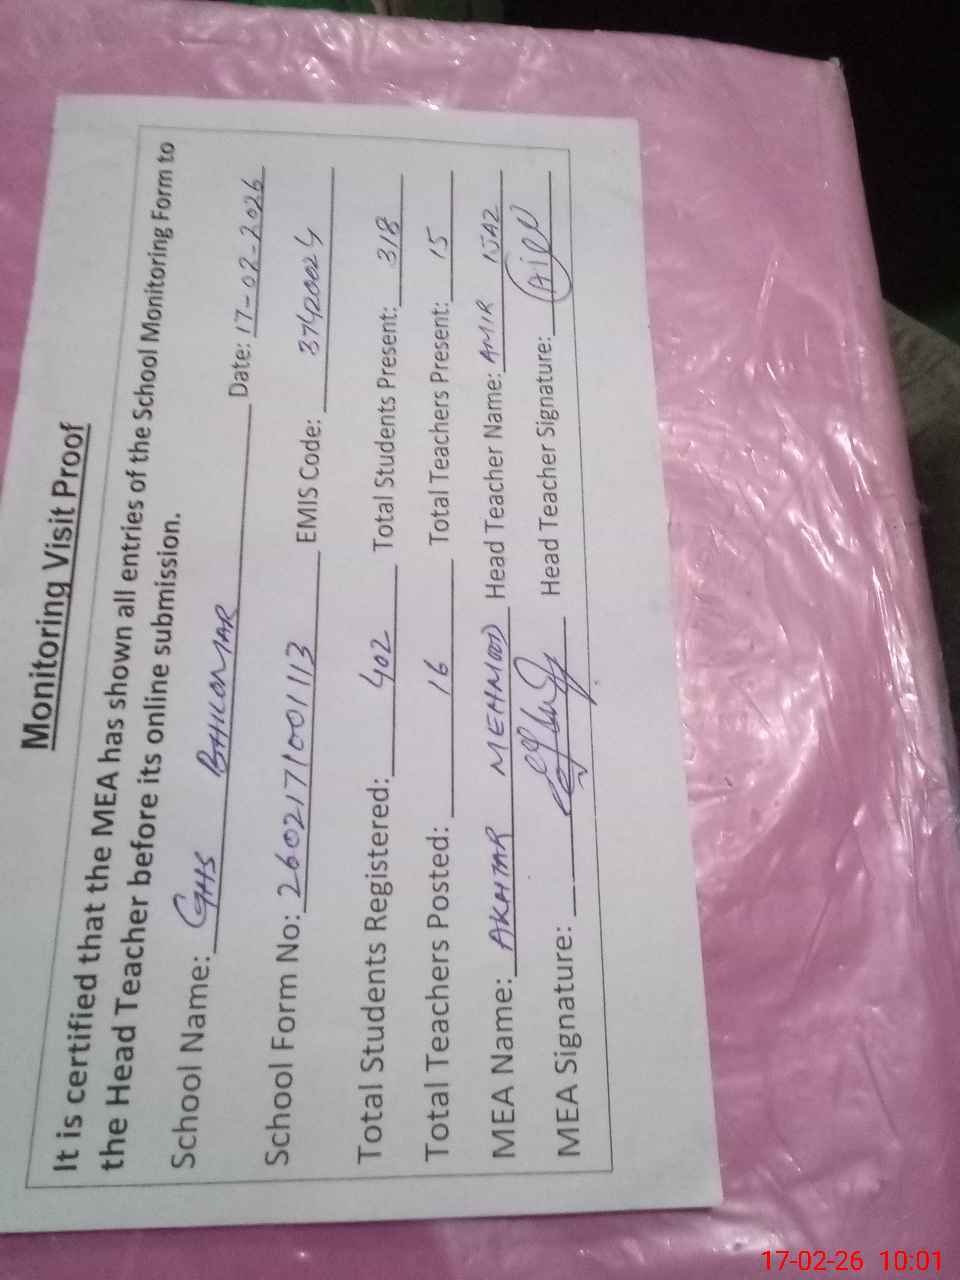 Monitoring Visit Proof
It is certified that the MEA has shown all entries of the School Monitoring Form to
the Head Teacher before its online submission.
School Name: GHS BHILOMAR Date: 17-02-2026
School Form No: 2602171001113 EMIS Code: 37420024
Total Students Registered: 402 Total Students Present: 318
Total Teachers Posted: 16 Total Teachers Present: 15
MEA Name: AKHTAR MEHMOOD Head Teacher Name: AMIR NIAZ
MEA Signature: Head Teacher Signature:
17-02-26 10:01